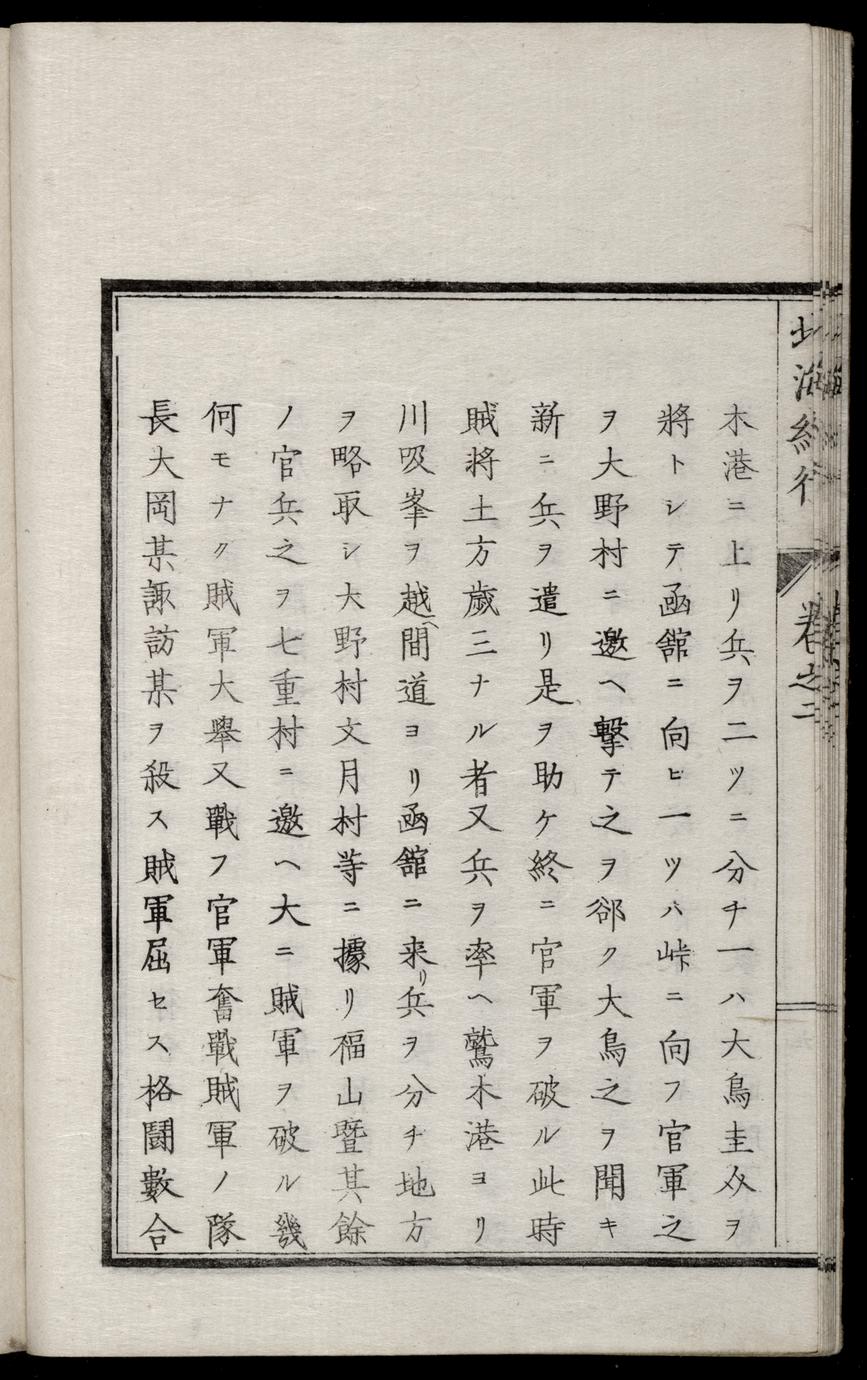 北海紀行 卷之二
木港ニ上リ兵ヲ二ツニ分チ一ハ大鳥圭介ヲ
將トシテ函舘ニ向ヒ一ツハ峠ニ向フ官軍之
ヲ大野村ニ邀ヘ撃テ之ヲ郤ク大鳥之ヲ聞キ
新ニ兵ヲ遣リ是ヲ助ケ終ニ官軍ヲ破ル此時
賊将土方歳三ナル者又兵ヲ率ヘ鷲木港ヨリ
川吸峯ヲ越ヘ間道ヨリ函舘ニ来リ兵ヲ分チ地方
ヲ略取シ大野村文月村等ニ據リ福山暨其餘
ノ官兵之ヲ七重村ニ邀ヘ大ニ賊軍ヲ破ル幾
何モナク賊軍大擧又戰フ官軍奮戰賊軍ノ隊
長大岡某諏訪某ヲ殺ス賊軍屈セス格鬪數合